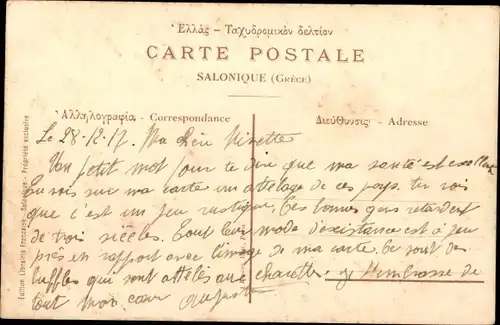 Ἑλλὰς – Ταχυδρομικὸν δελτίον
CARTE POSTALE
SALONIQUE (GRÈCE)
Ἀλληλογραφία. - Correspondance
Διεύθυνσις - Adresse
Edition Librairie Française - Salonique - Propriété exclusive
Le 28-12-17. Ma Minette
Un petit mot pour te dire que ma santé est excellente
Tu vois sur ma carte un attelage de ces pays. tu vois
que c'est un peu rustique. Ces bonnes gens retardent
de trois siècles. Tout leur mode d'existance est à peu
près en rapport avec l'image de ma carte. Ce sont des
buffles qui sont attelés au charettes. je t'embrasse de
tout mon cœur Auguste